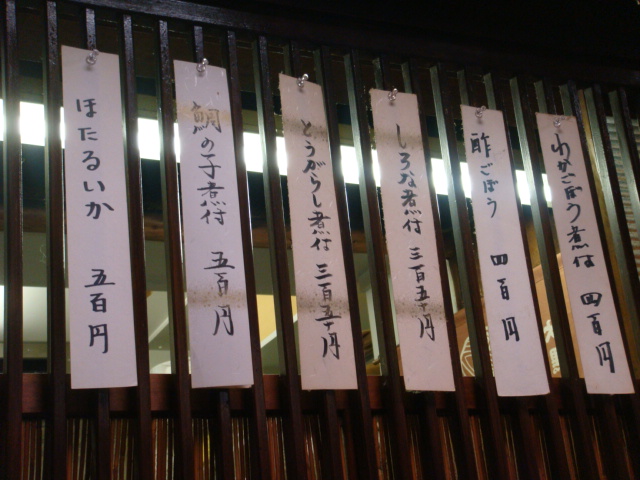 わかごぼう煮付 四百円
酢ごぼう 四百円
しろな煮付 三百五十円
とうがらし煮付 三百五十円
鯛の子煮付 五百円
ほたるいか 五百円